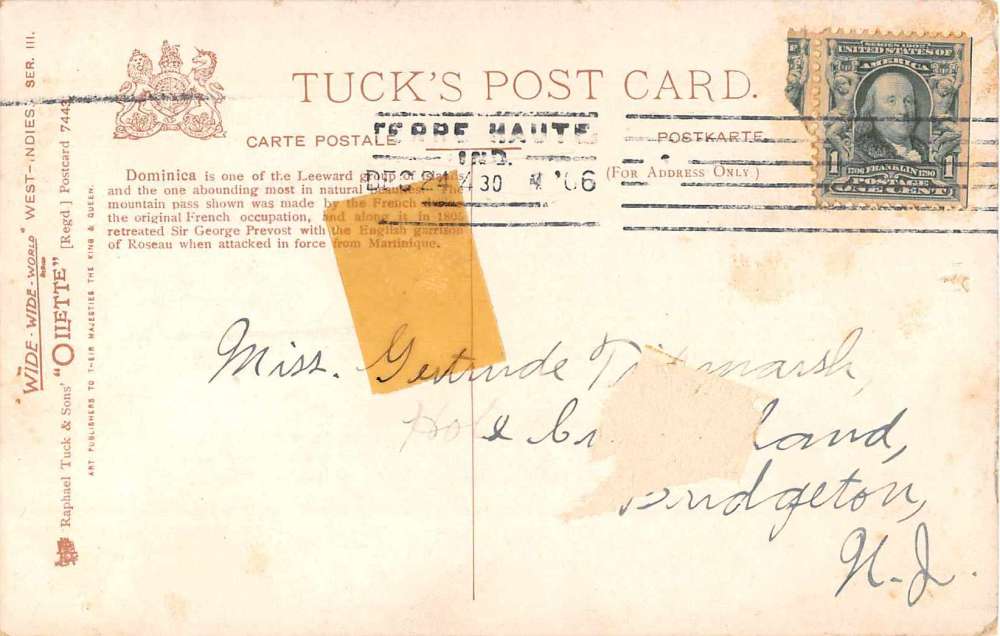 TUCK'S POST CARD.
CARTE POSTALE
POSTKARTE
(FOR ADDRESS ONLY)
TERRE HAUTE
IND.
DEC 24 30 '06
SERIES 1902
UNITED STATES OF
AMERICA
1 1
1706 FRANKLIN 1790
POSTAGE
ONE CENT
Dominica is one of the Leeward
and the one abounding most in natural
mountain pass shown was made by the French
the original French occupation, and along it in 1805
retreated Sir George Prevost with the English garrison
of Roseau when attacked in force from Martinique.
"WIDE-WIDE-WORLD" WEST-INDIES. SER. III.
Raphael Tuck & Sons' "OILETTE" [Regd.] Postcard 7443
ART PUBLISHERS TO THEIR MAJESTIES THE KING & QUEEN.
Miss. Gertrude
land,
Bridgeton,
N.J.